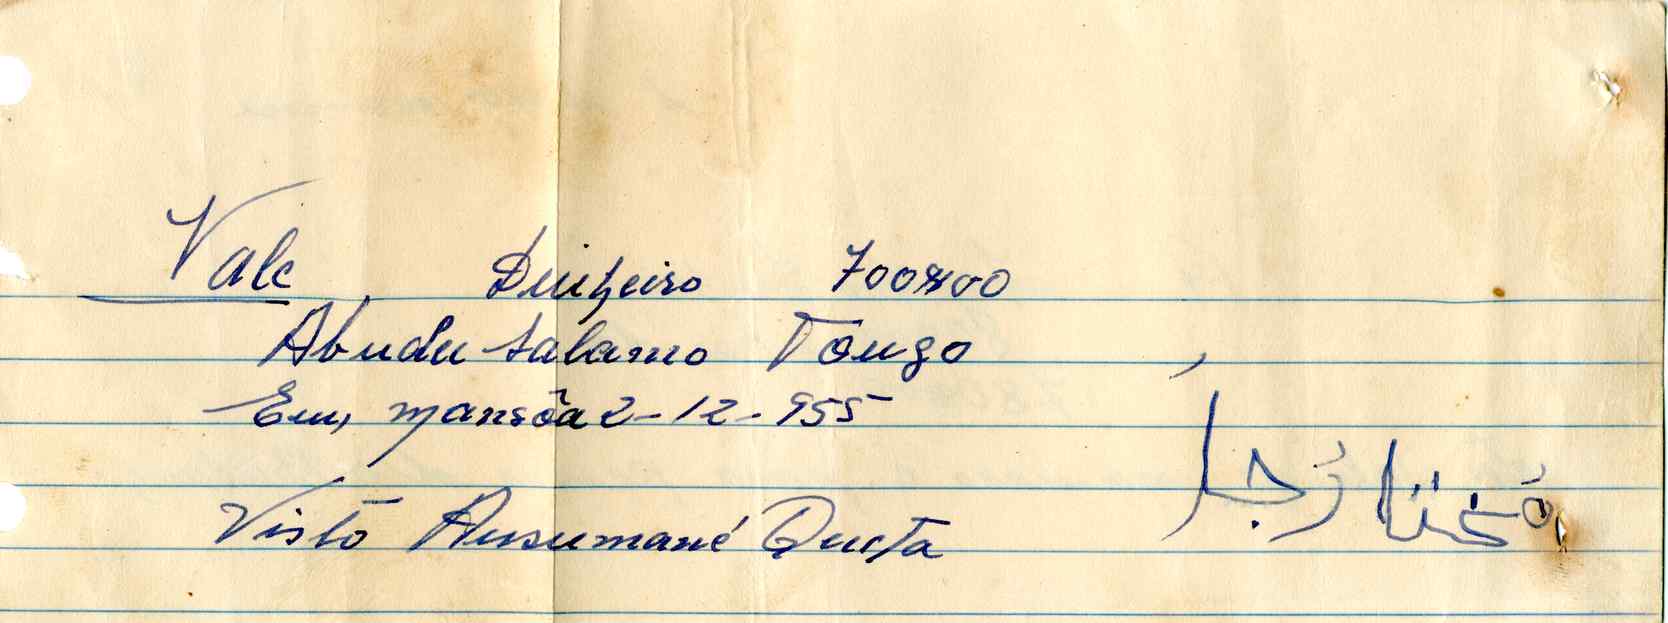 Vale Dinheiro 700$00
Abudu Salamo Tongo
Em, mansôa 2-12-955
Visto Ansumané Queta